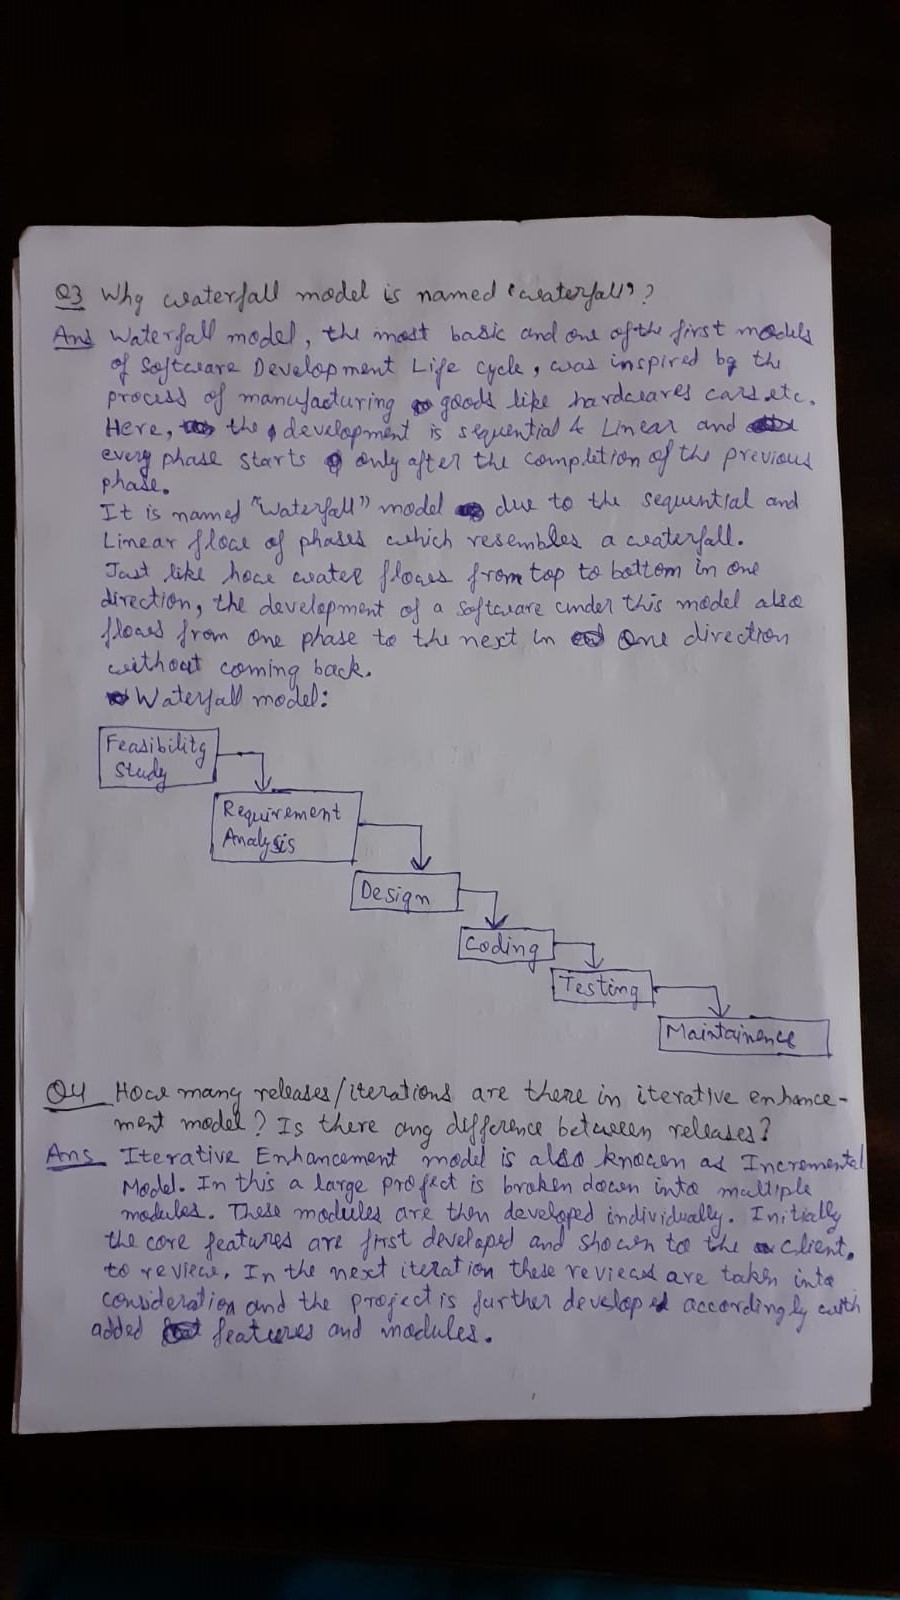 Q3 Why waterfall model is named "waterfall"?
Ans Waterfall model, the most basic and one of the first models
of Software Development Life cycle, was inspired by the
process of manufacturing goods like hardwares cars etc.
Here, the development is sequential & Linear and
every phase starts only after the completion of the previous
phase.
It is named "Waterfall" model due to the sequential and
Linear flow of phases which resembles a waterfall.
Just like how water flows from top to bottom in one
direction, the development of a software under this model also
flows from one phase to the next in one direction
without coming back.
Waterfall model:
Feasibility
Study
Requirement
Analysis
Design
Coding
Testing
Maintainence
Q4 How many releases/iterations are there in iterative enhance-
ment model? Is there any difference between releases?
Ans Iterative Enhancement model is also known as Incremental
Model. In this a large project is broken down into multiple
modules. These modules are then developed individually. Initially
the core features are first developed and shown to the client,
to review. In the next iteration these reviews are taken into
consideration and the project is further developed accordingly with
added features and modules.